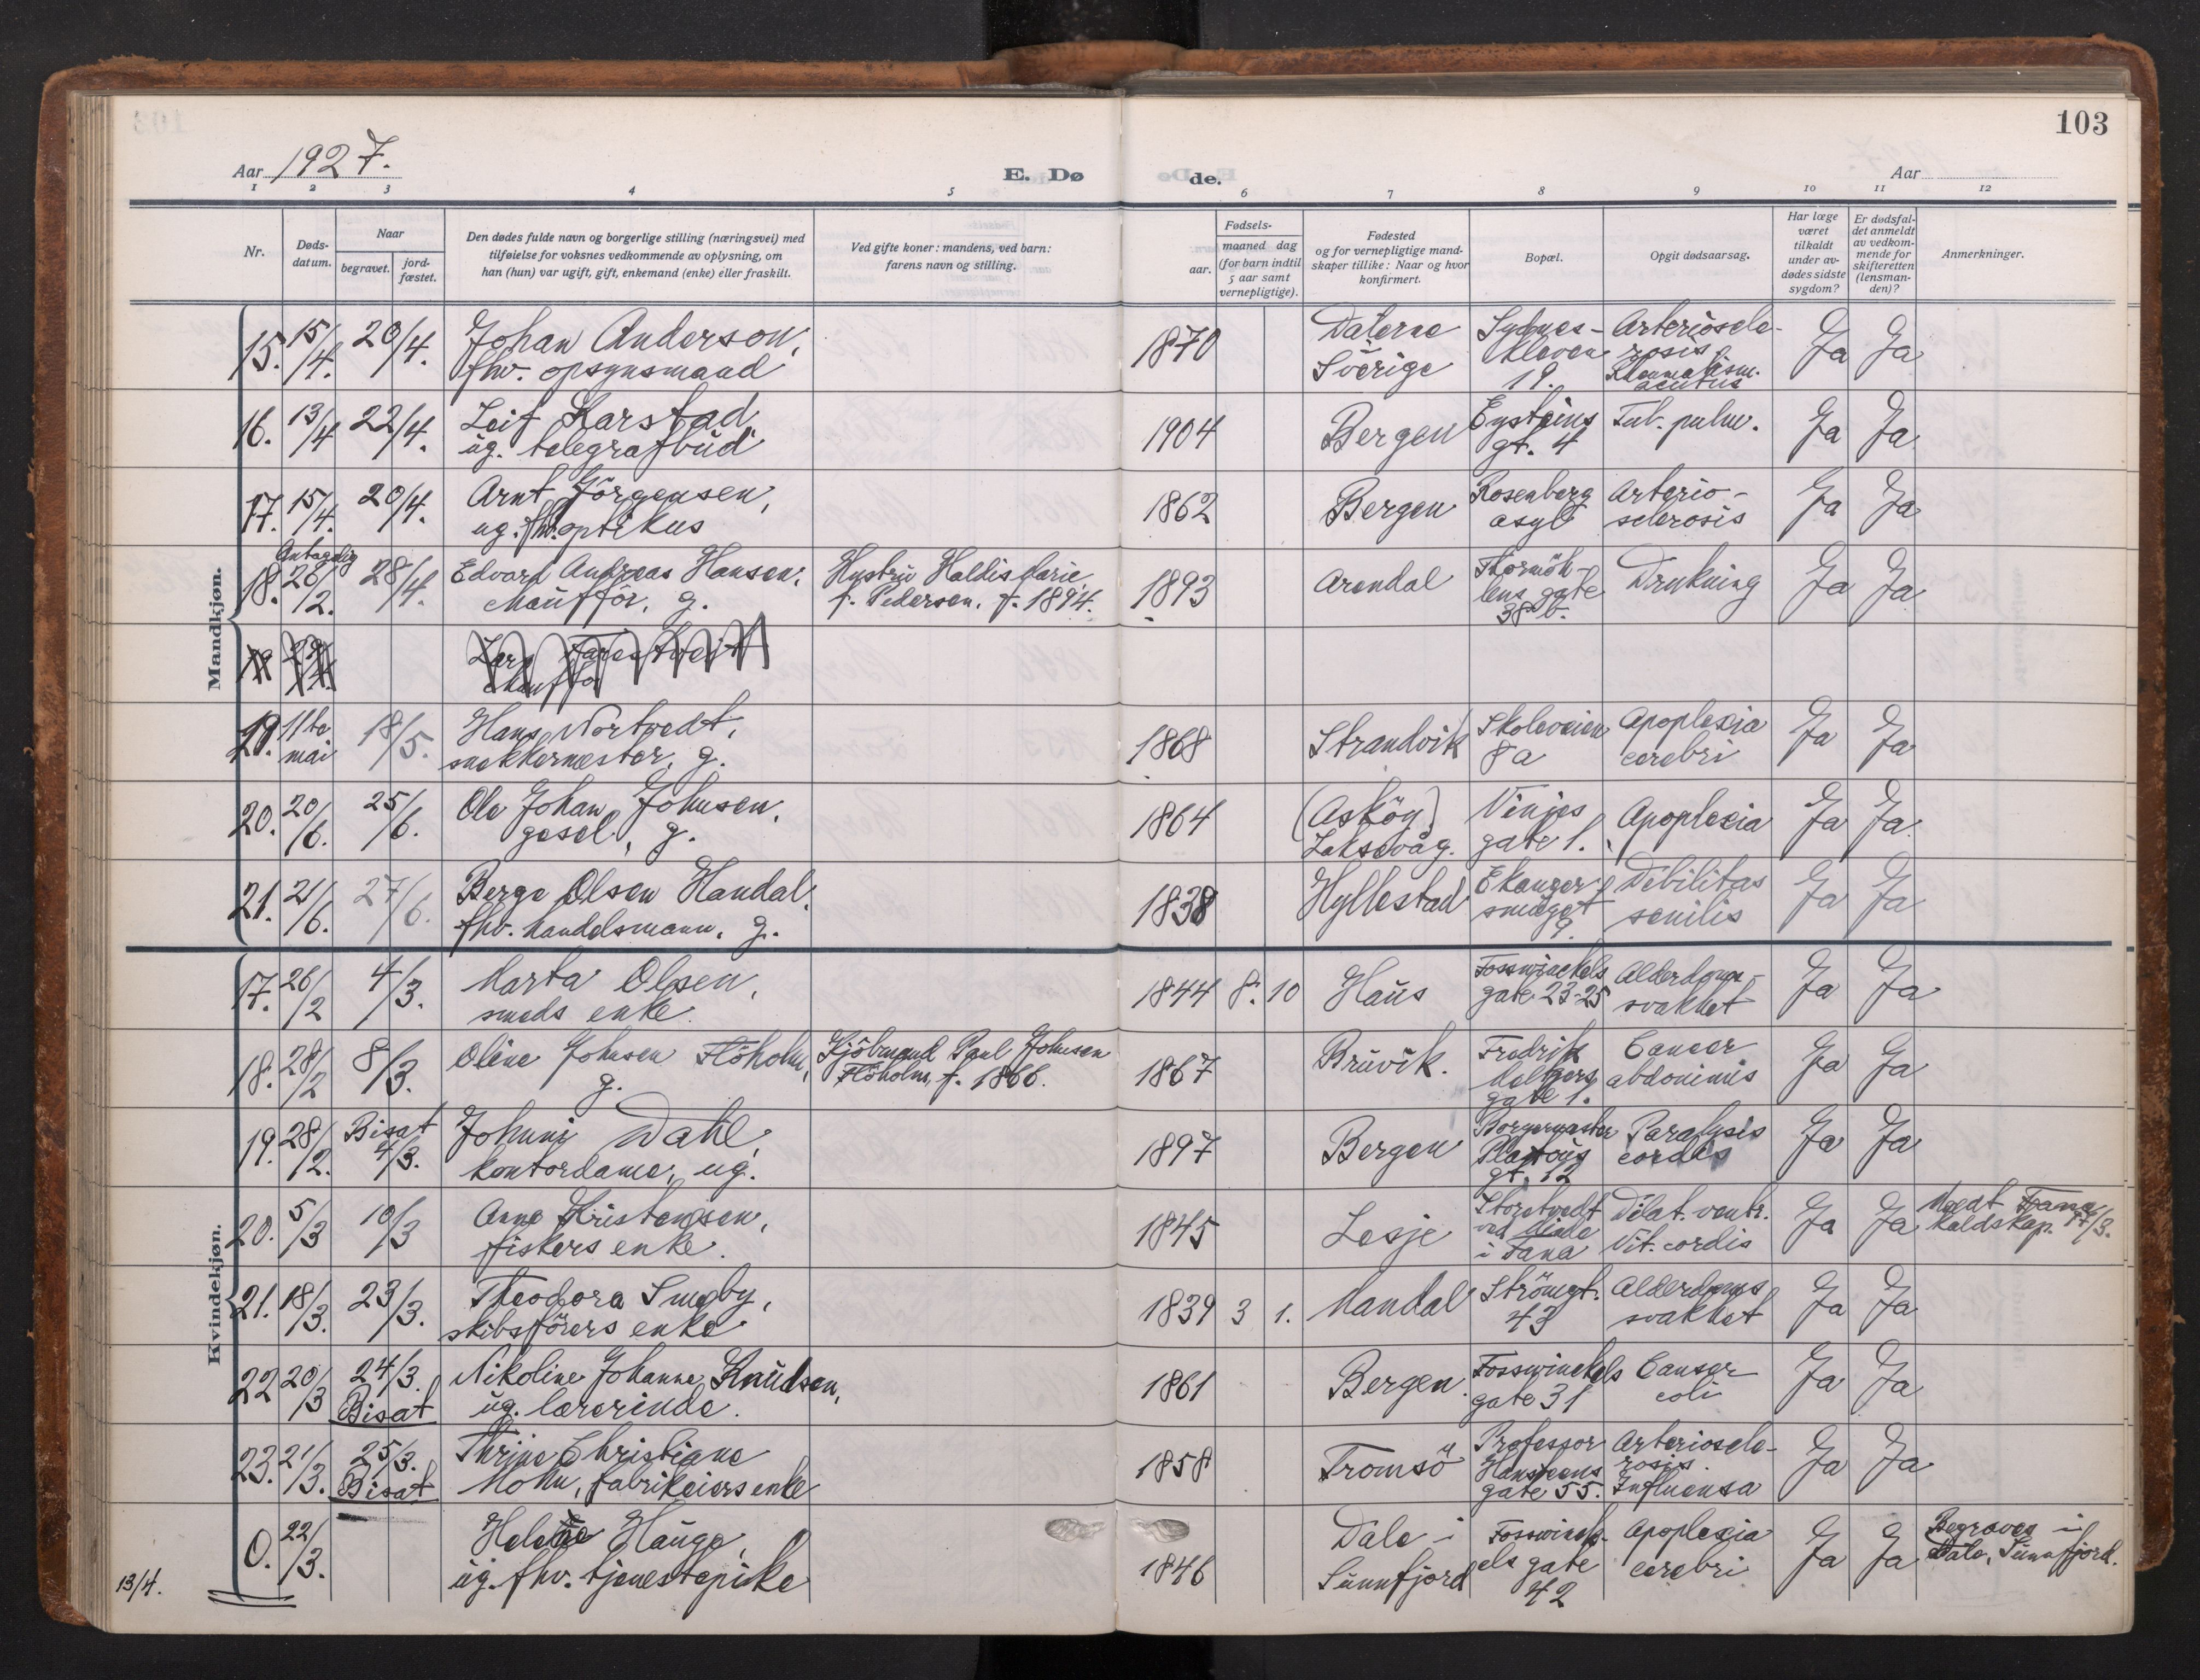 103
Aar 1927.
E. Døde.
Aar
1 2 3 4 5 6 7 8 9 10 11 12
Nr.
Døds-
datum.
Naar
begravet.
jord-
fæstet.
Den dødes fulde navn og borgerlige stilling (næringsvei) med
tilføielse for voksnes vedkommende av oplysning, om
han (hun) var ugift, gift, enkemand (enke) eller fraskilt.
Ved gifte koner: mandens, ved barn:
farens navn og stilling.
Fødsels-
aar.
maaned dag
(for barn indtil
5 aar samt
vernepligtige).
Fødested
og for vernepligtige mand-
skaper tillike: Naar og hvor
konfirmert.
Bopæl.
Opgit dødsaarsag.
Har læge
været
tilkaldt
under av-
dødes sidste
sygdom?
Er dødsfal-
det anmeldt
av vedkom-
mende for
skifteretten
(lensman-
den)?
Anmerkninger.
Mandkjøn.
15. 15/4. 20/4. Johan Anderson, 1870 Dalerne Sydnes- Arterioscle- Ja Ja
fhv. opsynsmand Sverige kleven rosis
19. Rheumatism.
acutus
16. 13/4 22/4. Leif Karstad, 1904 Bergen Eysteins Tub. pulm. Ja Ja
ug. telegrafbud gt. 4
17. 15/4. 20/4. Arnt Jörgensen, 1862 Bergen Rosenberg Arterio- Ja Ja
ug. fhv. optikus asyl sclerosis
Antagelig
18. 26/2. 28/4. Edvard Andreas Hansen, Hustru Haldis Marie 1893 Arendal Thormöh- Drukning Ja Ja
chaufför, g. f. Pedersen, f. 1894. lens gate
38 b.
19
chauffør
19. 11te 18/5. Hans Nortvedt, 1868 Strandvik Skoleveien Apoplexia Ja Ja
mai snekkermester, g. 8a cerebri
20. 20/6. 25/6. Ole Johan Johnsen, 1864 (Asköy) Vinjes Apoplexia Ja Ja
gesel, g. Laksevåg. gate 1.
21. 21/6. 27/6. Berge Olsen Handal, 1838 Hyllestad Ekanger Debilitas Ja Ja
fhv. handelsmann, g. smuget senilis
9.
Kvindekjøn.
17. 26/2 4/3. Marta Olsen, 1844 8. 10 Haus Fosswinckels Alderdoms- Ja Ja
smeds enke. gate 23-25 svakhet
18. 28/2 8/3. Oline Johnsen Flöholm, Kjöbmand Paul Johnsen 1867 Bruvik. Fredrik Cancer Ja Ja
g. Flöholm, f. 1866. Meltzers abdominis
gate 1.
19. 28/2. Bisat Johnni Dahl, 1897 Bergen Borgermester Paralysis Ja Ja
4/3. kontordame, ug. Platous cordis
gt. 12
20. 5/3 10/3 Anne Kristensen, 1845 Lesje Storetvedt Dilat. ventr. Ja Ja Meldt Fana
fiskers enke. ved Minde Vit. cordis herredskap. 17/3.
i Fana
21. 18/3. 23/3. Theodora Smeby, 1839 3 1. Mandal Strömgt. Alderdoms Ja Ja
skibsförers enke 43 svakhet
22 20/3 24/3. Nikoline Johanne Knudsen, 1861 Bergen. Fosswinckels Cancer Ja Ja
Bisat ug. lærerinde. gate 31 coli
23. 21/3. 25/3. Thrine Christiane 1858 Tromsö Professor Arterioscle- Ja Ja
Bisat Mohn, fabrikeiers enke Hansteens rosis.
gate 55. Influensa
0. 22/3. Helene Hauge, 1846 Dale i Fosswinck- Apoplexia Ja Ja Begraves i
13/4. ug. fhv. tjenestepike Sunnfjord els gate cerebri Dale, Sunnfjord.
42